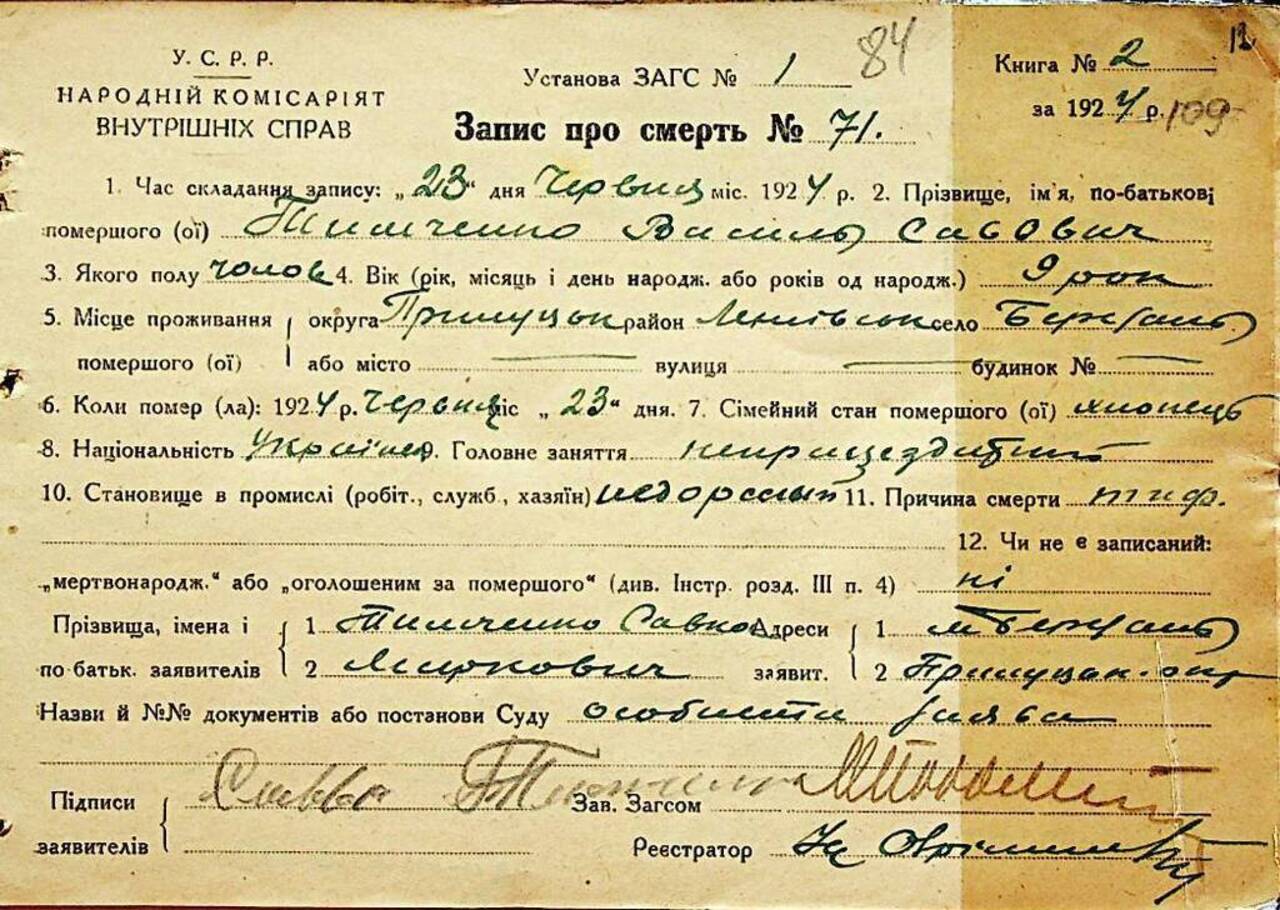 У. С. Р. Р.
НАРОДНІЙ КОМІСАРІЯТ
ВНУТРІШНІХ СПРАВ
Установа ЗАГС № 1
84
Книга № 2
12
за 1924 р.
109
Запис про смерть № 71.
1. Час складання запису: „23“ дня Червня міс. 1924 р. 2. Прізвище, ім'я, по-батькові
помершого (ої) Тимченко Василь Савович
3. Якого полу чолов 4. Вік (рік, місяць і день народж. або років од народж.) 9 рок
5. Місце проживання округа Прилуцьк район село
помершого (ої) або місто — вулиця — будинок № —
6. Коли помер (ла): 1924 р. Червня міс „23“ дня. 7. Сімейний стан помершого (ої) хлопець
8. Національність Українец 9. Головне заняття
10. Становище в промислі (робіт., служб., хазяїн) 11. Причина смерти тиф.
12. Чи не є записаний:
„мертвонародж.“ або „оголошеним за помершого“ (див. Інстр. розд. III п. 4) ні
Прізвища, імена і 1 Тимченко Савка Адреси 1
по батьк. заявителів 2 Маркович заявит. 2 Прилуцьк. окр
Назви й №№ документів або постанови Суду особиста заява
Підписи Савва Зав. Загсом
заявителів Реєстратор